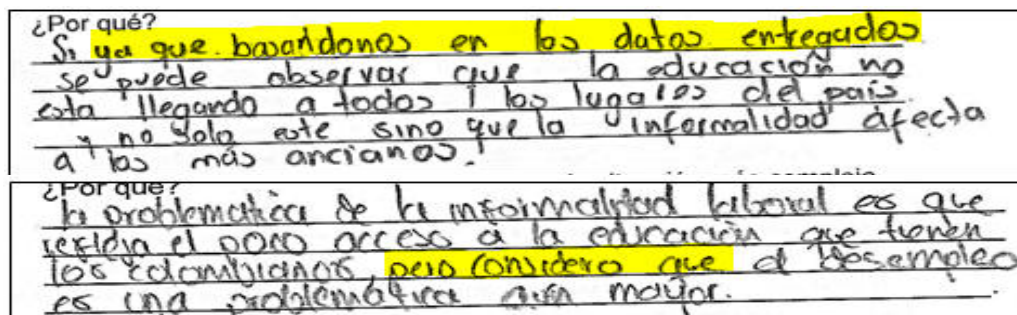 ¿Por qué?
Si ya que basandonos en los datos entregados
se puede observar que la educación no
esta llegando a todos los lugares del país
y no solo este sino que la informalidad afecta
a los más ancianos.
¿Por qué?
la problematica de la informalidad laboral es que
refleja el poco acceso a la educación que tienen
los colombianos, pero considero que el desempleo
es una problemática aún mayor.